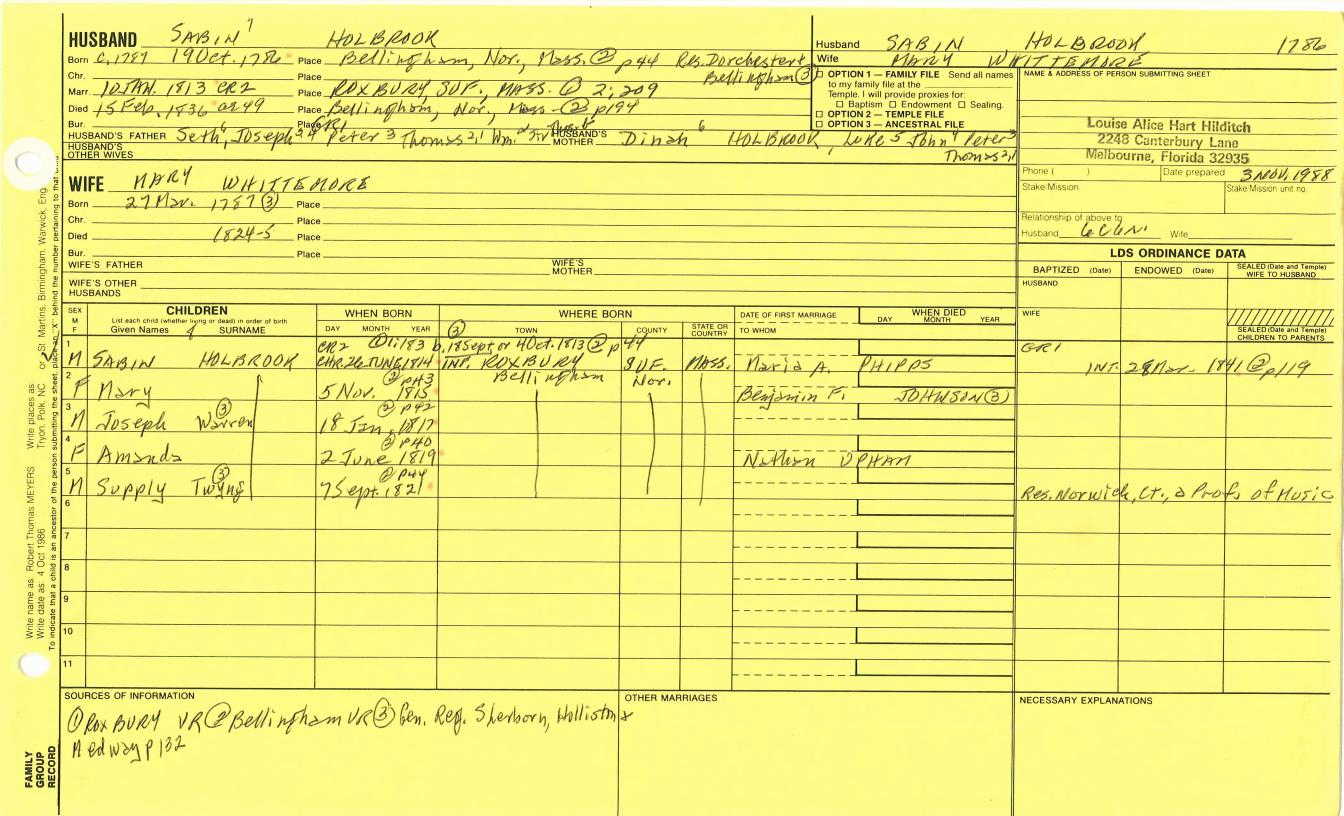 HUSBAND SABIN 7 HOLBROOK
Born c.1787 19 Oct. 1786 Place Bellingham, Nor., Mass. ② p44 Res. Dorchester &
Bellingham ③
Chr. Place
Marr. 10 JAN. 1813 CR2 Place ROXBURY, SUF., MASS. ① 2;209
Died 15 Feb. 1836 ae 49 Place Bellingham, Nor., Mass. ② p194
Bur. Place GR1
HUSBAND'S FATHER Seth 6, Joseph 5 4 Peter 3 Thomas 2,1 Wm.
HUSBAND'S MOTHER Dinah 6 HOLBROOK, Luke 5 John 4 Peter 3
Thomas 2,1
HUSBAND'S OTHER WIVES
Husband SABIN HOLBROOK 1786
Wife MARY WHITTEMORE
OPTION 1 — FAMILY FILE Send all names
to my family file at the
Temple. I will provide proxies for:
Baptism Endowment Sealing.
OPTION 2 — TEMPLE FILE
OPTION 3 — ANCESTRAL FILE
NAME & ADDRESS OF PERSON SUBMITTING SHEET
Louise Alice Hart Hilditch
2248 Canterbury Lane
Melbourne, Florida 32935
Phone ( ) Date prepared 3 NOV. 1988
Stake-Mission Stake/Mission unit no.
Relationship of above to:
Husband 6C6N. Wife
WIFE MARY WHITTEMORE
Born 27 Mar. 1787 ③ Place
Chr. Place
Died 1824-5 Place
Bur. Place
WIFE'S FATHER WIFE'S MOTHER
WIFE'S OTHER HUSBANDS
LDS ORDINANCE DATA
BAPTIZED (Date) ENDOWED (Date) SEALED (Date and Temple) WIFE TO HUSBAND
HUSBAND
WIFE
SEALED (Date and Temple) CHILDREN TO PARENTS
SEX M F
CHILDREN
List each child (whether living or dead) in order of birth
Given Names SURNAME
WHEN BORN
DAY MONTH YEAR
WHERE BORN
③ TOWN COUNTY STATE OR COUNTRY
DATE OF FIRST MARRIAGE
TO WHOM
WHEN DIED
DAY MONTH YEAR
1 CR2 ① 1;183 b. 18 Sept. or 4 Oct. 1813 ② p44 GR1
M SABIN HOLBROOK CHR. 26 JUNE, 1814 INT. ROXBURY SUF. MASS. Maria A. PHIPPS INT. 28 Mar. 1841 ② p119
2 ② p43 Bellingham Nor.
F Mary 5 Nov. 1815 Benjamin F. JOHNSON ③
3 ③ ② p42
M Joseph Warren 18 Jan. 1817
4 ② p40
F Amanda 2 June 1819 Nathan UPHAM
5 ③ ② p44
M Supply Twyng 7 Sept. 1821 Res. Norwich, Ct., a Prof. of Music
6
7
8
9
10
11
SOURCES OF INFORMATION
① ROXBURY VR ② Bellingham VR ③ Gen. Reg. Sherborn, Holliston &
Medway p 132
OTHER MARRIAGES
NECESSARY EXPLANATIONS
FAMILY GROUP RECORD
Write name as: Robert Thomas MEYERS Write places as: Tryon, Polk, NC or St. Martins, Birmingham, Warwick, Eng.
Write date as: 4 Oct 1986
To indicate that a child is an ancestor of the person submitting the sheet, place an "X" behind the number pertaining to that